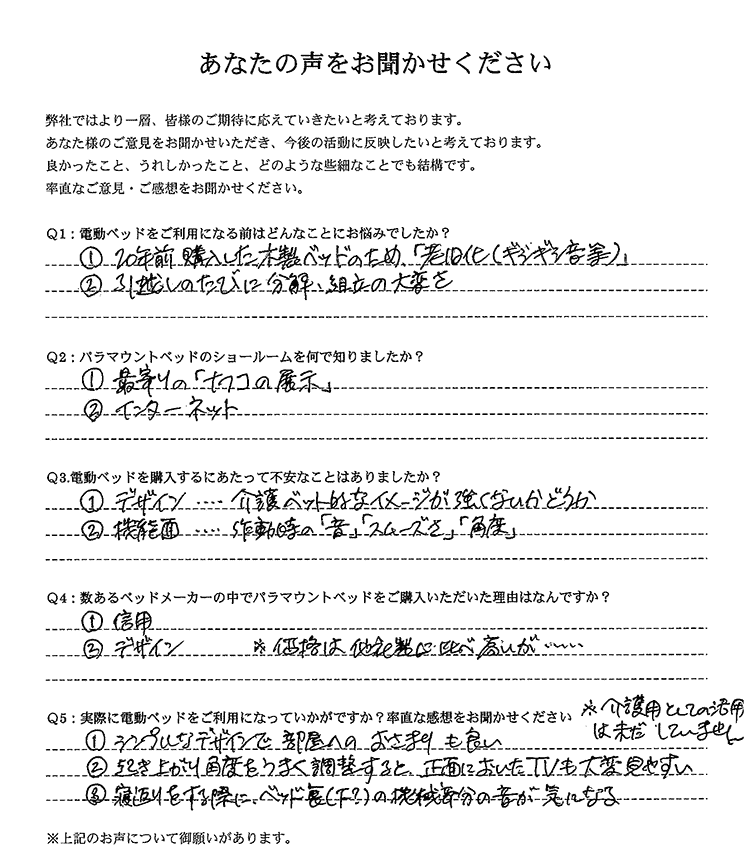 あなたの声をお聞かせください
弊社ではより一層、皆様のご期待に応えていきたいと考えております。
あなた様のご意見をお聞かせいただき、今後の活動に反映したいと考えております。
良かったこと、うれしかったこと、どのような些細なことでも結構です。
率直なご意見・ご感想をお聞かせください。
Q1：電動ベッドをご利用になる前はどんなことにお悩みでしたか？
① 20年前購入した木製ベッドのため、「老旧化（ギシギシ音等）」
② 引越しのたびに分解、組立の大変さ
Q2：パラマウントベッドのショールームを何で知りましたか？
① 最寄りの「ナフコの展示」
② インターネット
Q3.電動ベッドを購入するにあたって不安なことはありましたか？
① デザイン ‥‥ 介護ベット的なイメージが強くないかどうか
② 機能面 ‥‥ 作動時の「音」「スムーズさ」「角度」
Q4：数あるベッドメーカーの中でパラマウントベッドをご購入いただいた理由はなんですか？
① 信用
② デザイン ※価格は他社製に比べ高いが‥‥‥
Q5：実際に電動ベッドをご利用になっていかがですか？率直な感想をお聞かせください ※介護用としての活用
は未だしていません
① シンプルなデザインで部屋へのおさまりも良い
② 起き上がり角度をうまく調整すると、正面においたTVも大変見やすい
③ 寝返りをする際に、ベッド裏(下?)の機械部分の音が気になる
※上記のお声について御願いがあります。